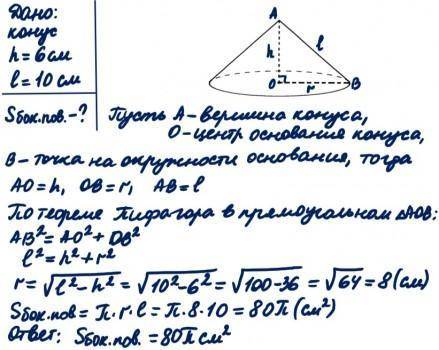 Дано:
конус
h = 6 см
l = 10 см
Sбок.пов. - ?
A
h
l
O
r
B
Пусть А - вершина конуса,
О - центр основания конуса,
В - точка на окружности основания, тогда
AO = h, OB = r, AB = l
По теореме Пифагора в прямоугольном ΔAOB:
AB² = AO² + OB²
l² = h² + r²
r = √(l² - h²) = √(10² - 6²) = √(100 - 36) = √64 = 8 (см)
Sбок.пов = π·r·l = π·8·10 = 80π (см²)
Ответ: Sбок.пов. = 80π см²